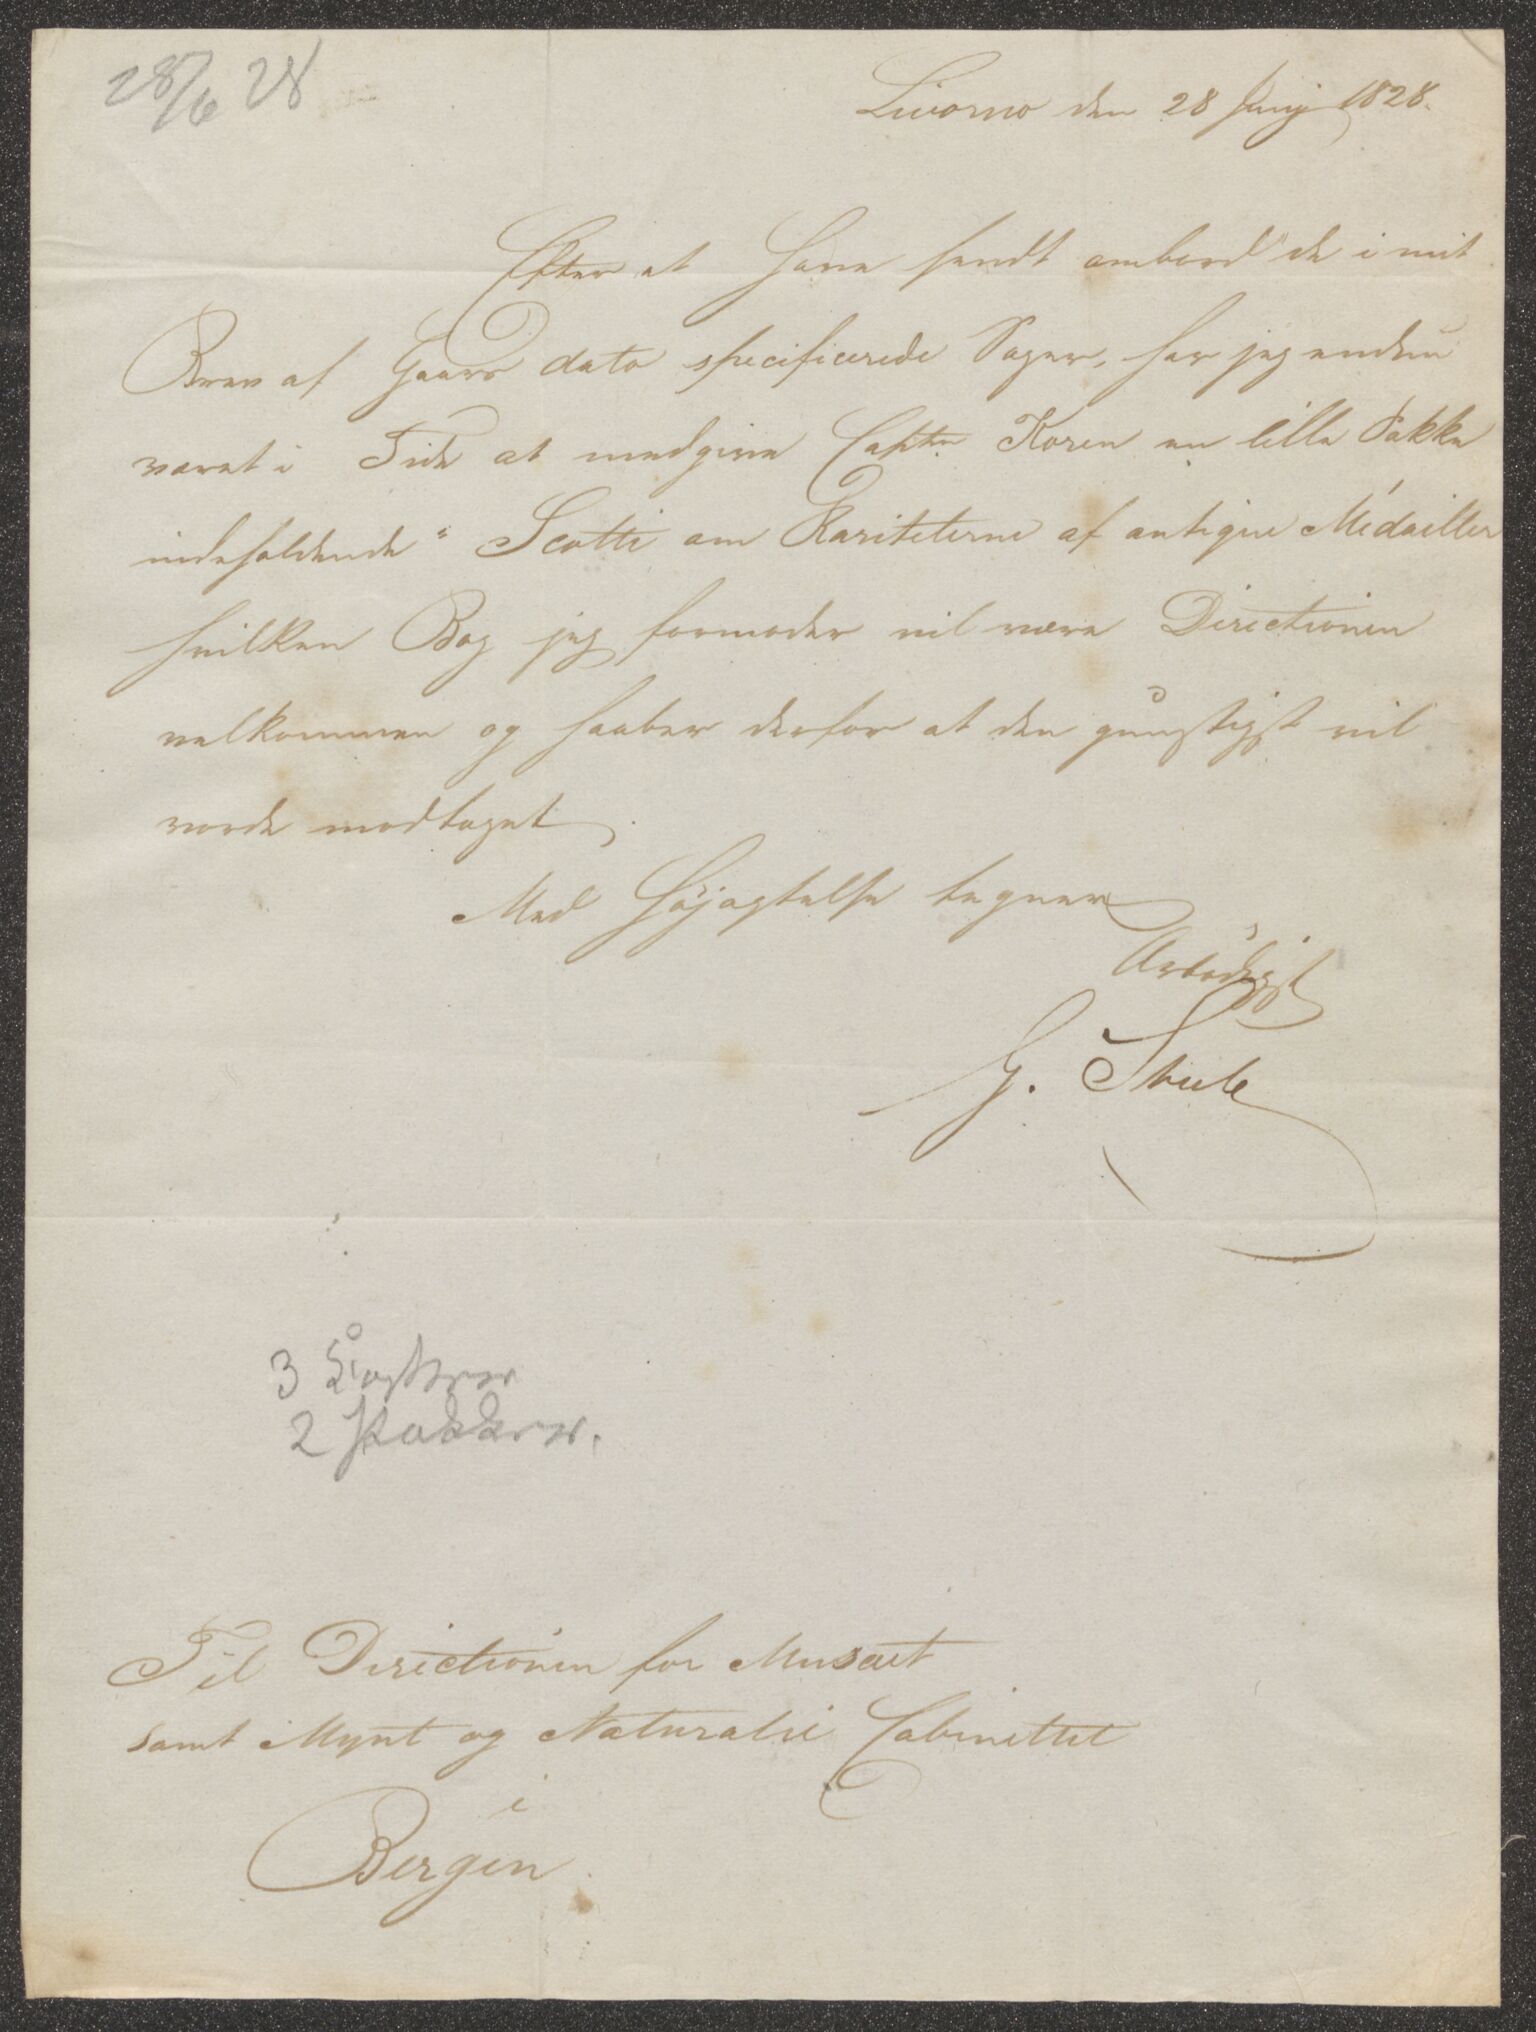 28/6 28
Livorno den 28 Junij 1828.
Efter at have sendt ombord de i mit
Brev af Gaars dato specificerede Sager, har jeg endnu
været i Tide at medgive Captn Koren en lille Pakke
indeholdende " Scotti om Rariteterne af antique Médailler
hvilken Bog jeg formoder vil være Directionen
velkommen og haaber derfor at den gunstigst vil
vorde modtaget
Med Højagtelse tegner
Ærbødigst
G.
3
2 Pakker.
Til Directionen for Musæet
samt Mynt og Naturalie Cabinettet
i
Bergen